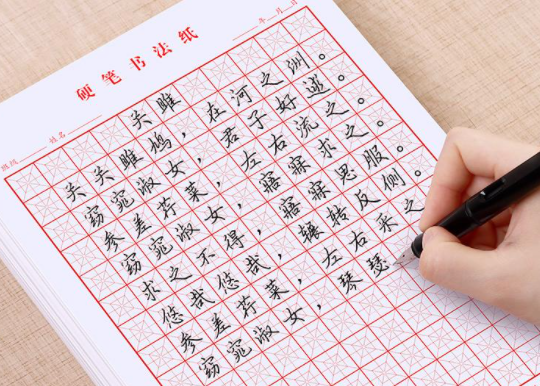 硬笔书法纸
班级 姓名 年 月 日
关雎
关关雎鸠，在河之洲。
窈窕淑女，君子好逑。
参差荇菜，左右流之。
窈窕淑女，寤寐求之。
求之不得，寤寐思服。
悠哉悠哉，辗转反侧。
参差荇菜，左右采之
窈窕淑女，琴瑟